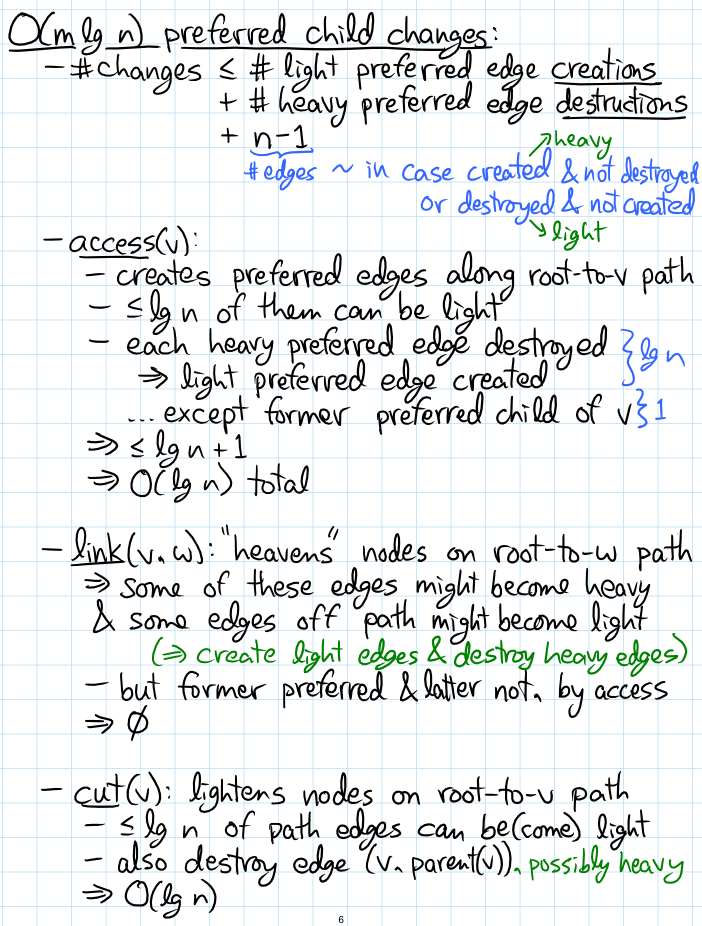 O(m lg n) preferred child changes:
- #changes ≤ # light preferred edge creations
+ # heavy preferred edge destructions
+ n-1
↗heavy
#edges ~ in case created & not destroyed
or destroyed & not created
↘light
- access(v):
- creates preferred edges along root-to-v path
- ≤ lg n of them can be light
- each heavy preferred edge destroyed } lg n
⇒ light preferred edge created
... except former preferred child of v } 1
⇒ ≤ lg n + 1
⇒ O(lg n) total
- link(v, w): "heavens" nodes on root-to-w path
⇒ some of these edges might become heavy
& some edges off path might become light
(⇒ create light edges & destroy heavy edges)
- but former preferred & latter not, by access
⇒ ∅
- cut(v): lightens nodes on root-to-v path
- ≤ lg n of path edges can be(come) light
- also destroy edge (v, parent(v)), possibly heavy
⇒ O(lg n)
6